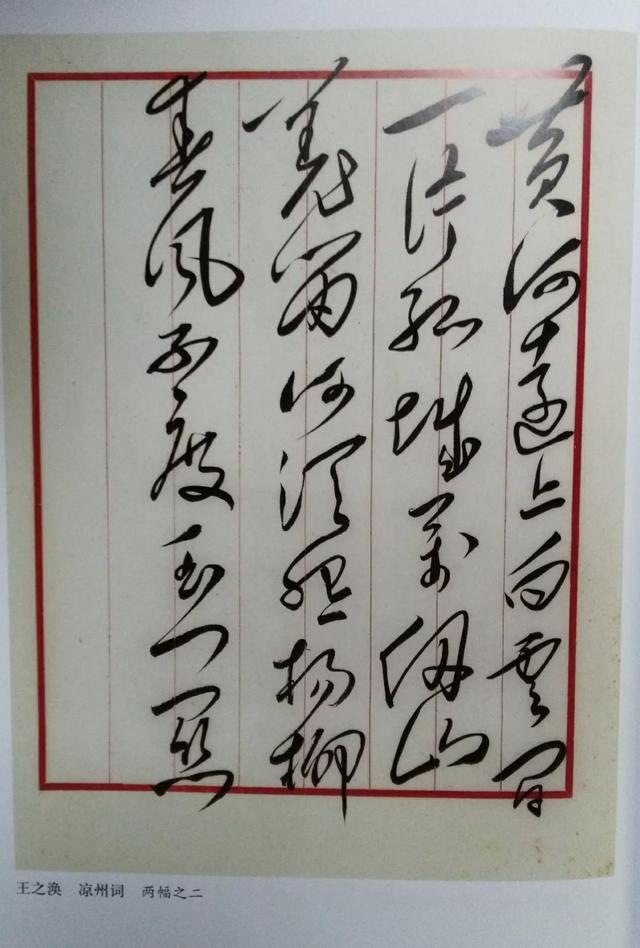 黄河远上白云间
一片孤城万仞山
羌笛何须怨杨柳
春风不度玉门关
王之涣 凉州词 两幅之二